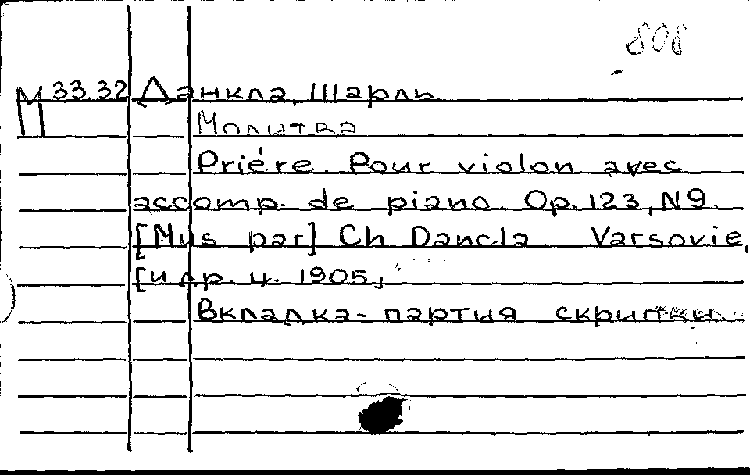 808
М 33.32 Данкла, Шарль
П Молитва
Prière. Pour violon avec
accomp. de piano. Op. 123, N9
[Mus par] Ch Dancla Varsovie,
[и др. ц. 1905,
Вкладка - партия скрипки.